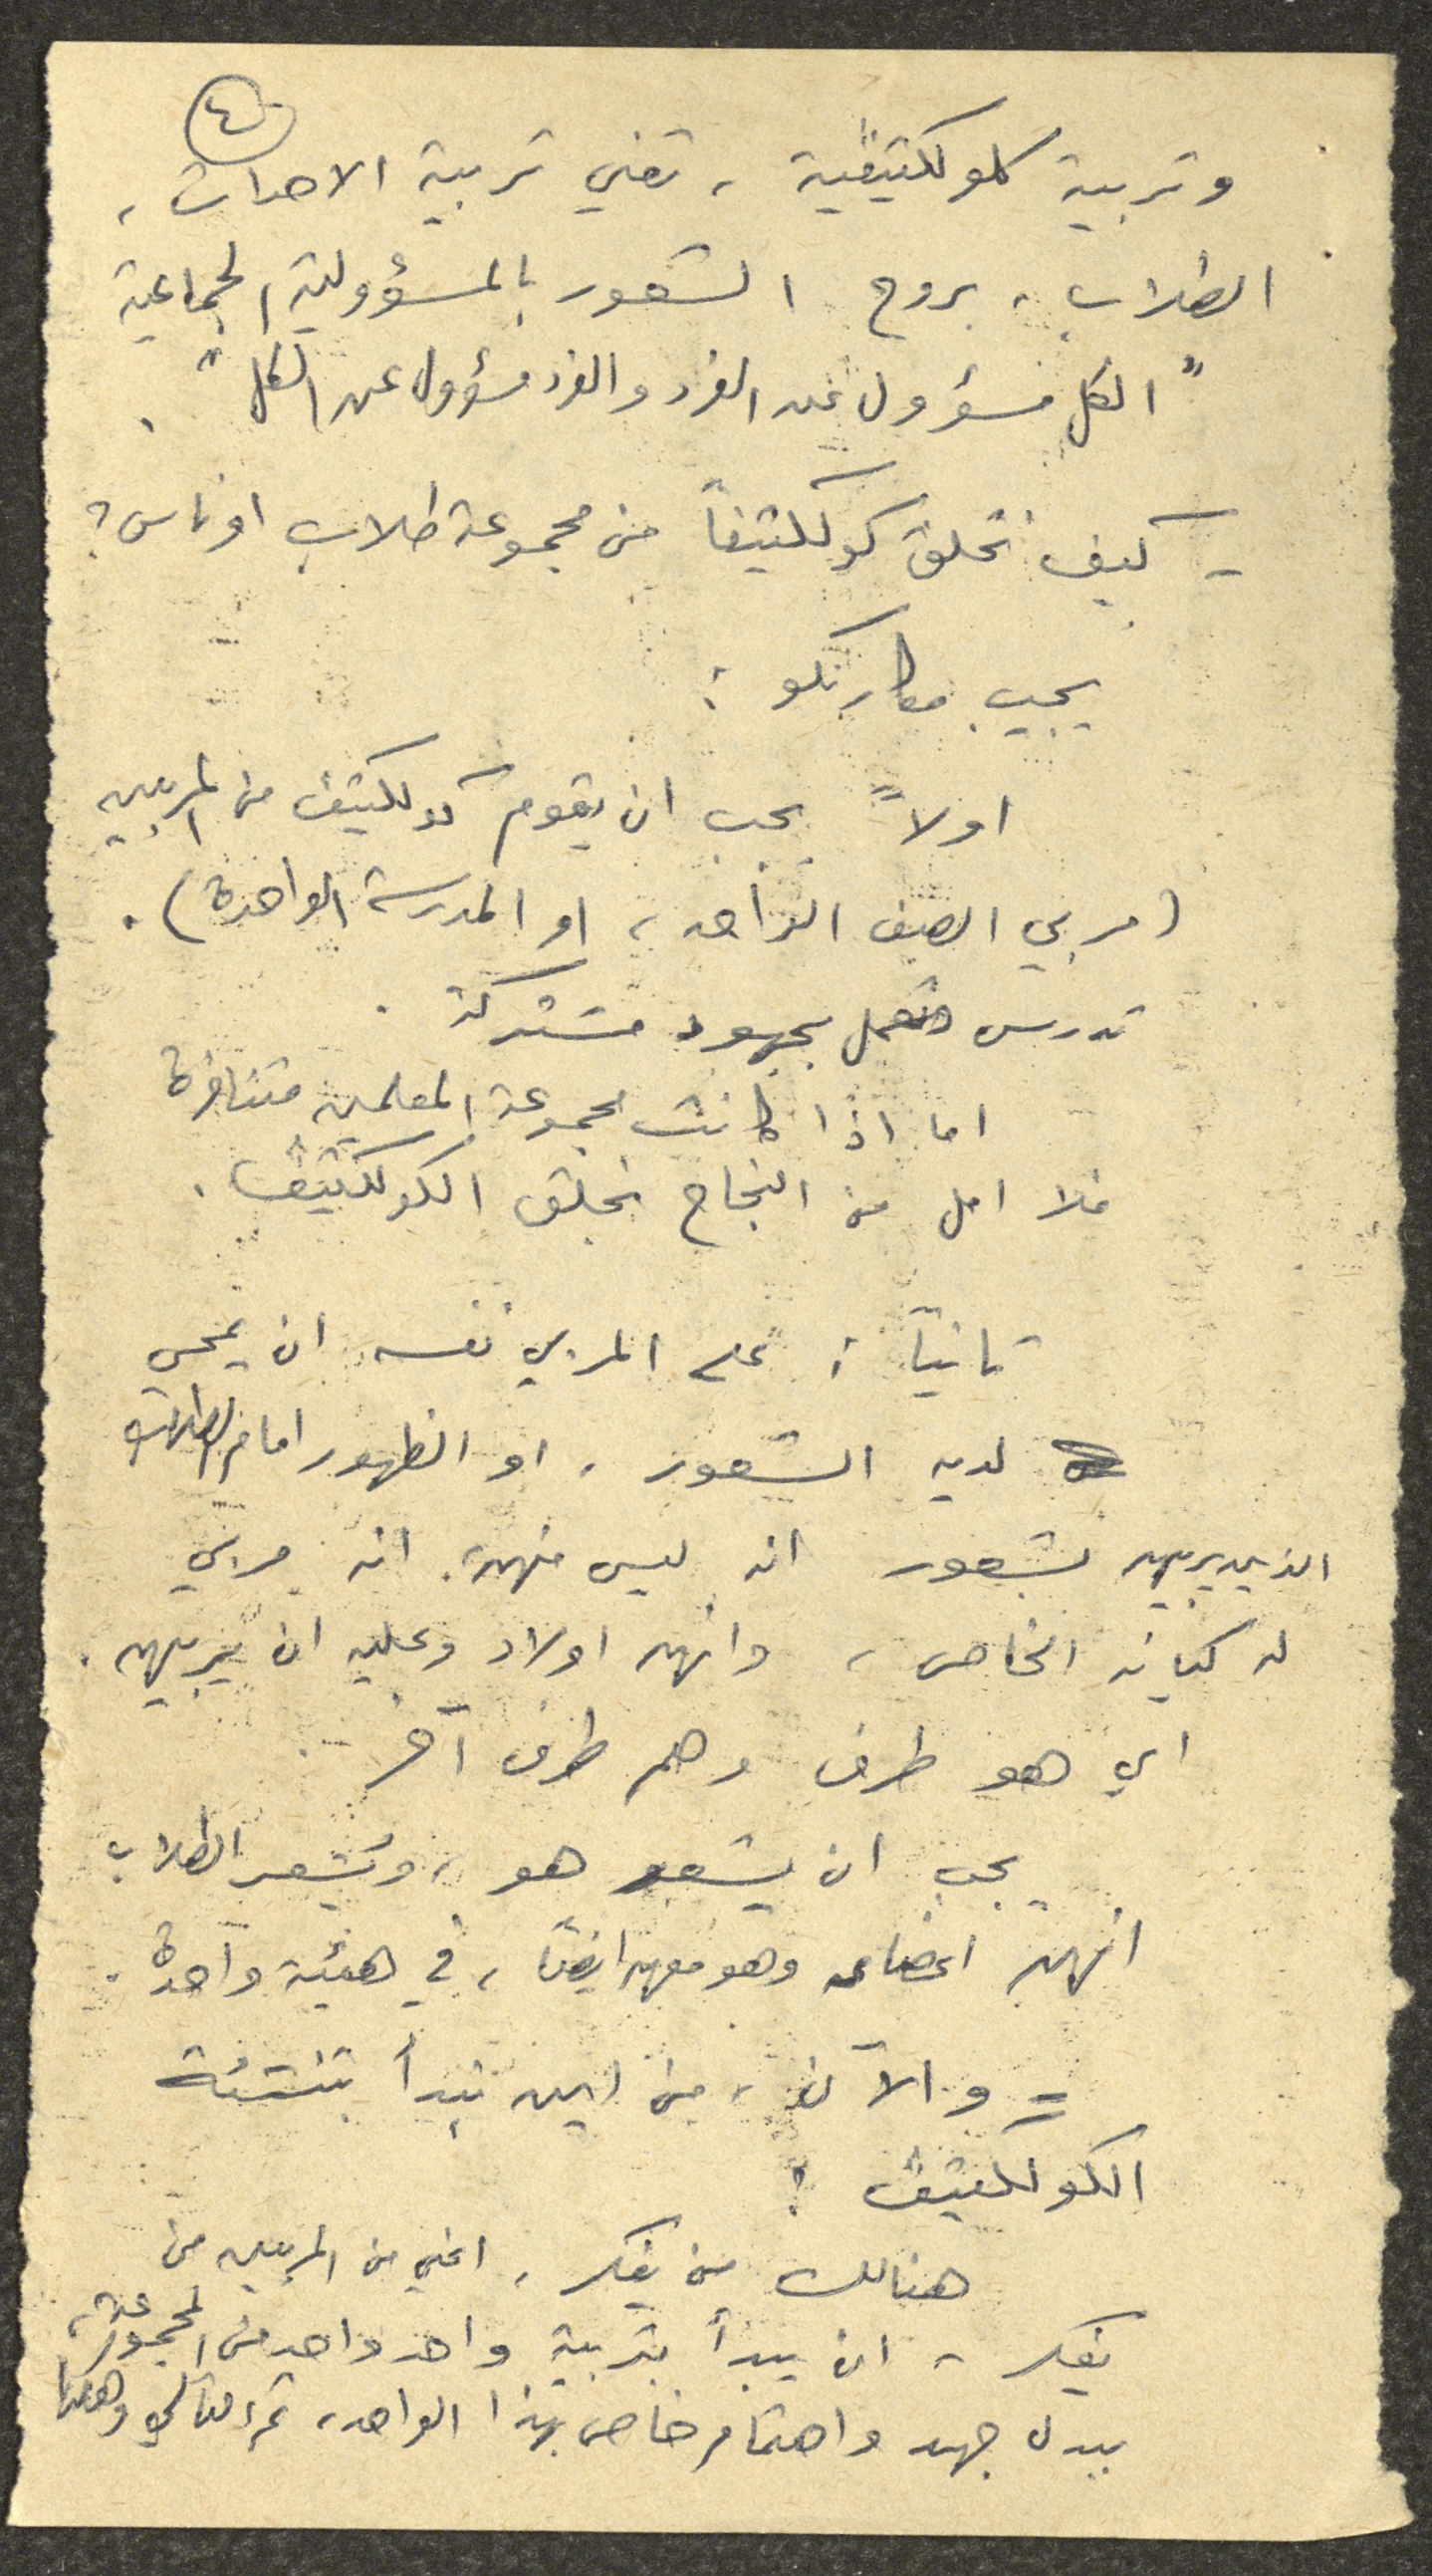 ٤
وتربية كلوكلتيڤية ، تعني تربية الاحداث ،
الطلاب ، بروح الشعور بالمسؤولية الجماعية
" الكل مسؤول عن الفرد والفرد مسؤول عن الكل " .
- كيف نخلق كوكلتيفاً من مجموعة طلاب او ناس ؟
يجيب مكارنكو :
اولاً يجب ان يقوم كولكتيف من المربين
( مربي الصف الواحد ، او المدرسة الواحدة ) .
تدرس وتعمل بجهود مشتركة .
اما اذا كانت مجموعة المعلمين متنافرة
فلا امل من النجاح بخلق الكولكتيڤ .
ثانياً : على المربي نفسه ان يمحى
لديه الشعور ، او الظهور امام الطلاب
الذين يربيهم بشعور انه ليس منهم ، انه مربي
له كيانه الخاص ، وانهم اولاد وعليه ان يربيهم .
اي هو طرف وهم طرف آخر .
يجب ان يشعر هو ، ويشعر الطلاب
انهم اعضاء وهو معهم ايضاً ، في هيئة واحدة .
= والآن ، من اين نبدأ بتنشئة
الكولكتيڤ ؟
هنالك من يفكر ، اعني من المربين من
يفكر - ان يبدأ بتربية واحد واحد من المجموعة ،
يبدل جهد واهتمام خاص بهذا الواحد ، ثم الثاني وهكذا